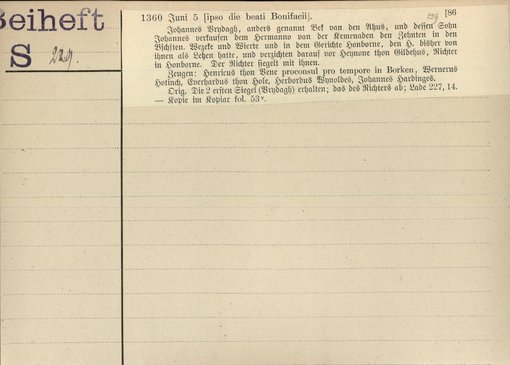 Beiheft
S 229.
229 [86
1360 Juni 5 [ipso die beati Bonifacii].
Johannes Vrydagh, anders genannt Bek van den Ahus, und dessen Sohn
Johannes verkaufen dem Hermanno van der Kemenaden den Zehnten in den
Bschften. Wezeke und Wierte und in dem Gerichte Honborne, den H. bisher von
ihnen als Lehen hatte, und verzichten darauf vor Heynone thon Gildehus, Richter
in Honborne. Der Richter siegelt mit ihnen.
Zeugen: Henricus thon Vene proconsul pro tempore in Borken, Wernerus
Hotinch, Everhardus thon Hole, Herbordus Wynoldes, Johannes Hardinges.
Orig. Die 2 ersten Siegel (Vrydagh) erhalten; das des Richters ab; Lade 227, 14.
— Kopie im Kopiar fol. 53v.